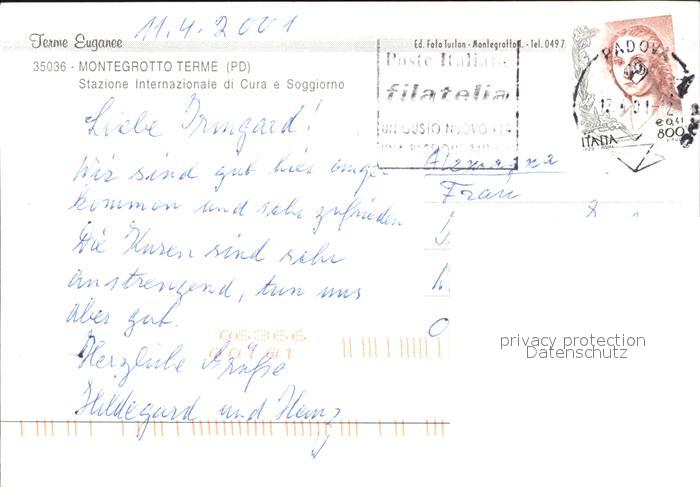 11.4.2001
Terme Euganee
35036 - MONTEGROTTO TERME (PD)
Stazione Internazionale di Cura e Soggiorno
Ed. Foto Turlon - Montegrotto T. - Tel. 049 7
Poste Italiane
filatelia
UN GUSTO NUOVO
PADOVA
ITALIA
€ 0,41
800
Liebe Irmgard!
Wir sind gut hier ange-
kommen und sehr zufrieden
Die Kuren sind sehr
anstrengend, tun uns
aber gut.
Herzliche Grüße
Hildegard und Heinz
Alemagna
Frau
06366
00101
privacy protection
Datenschutz